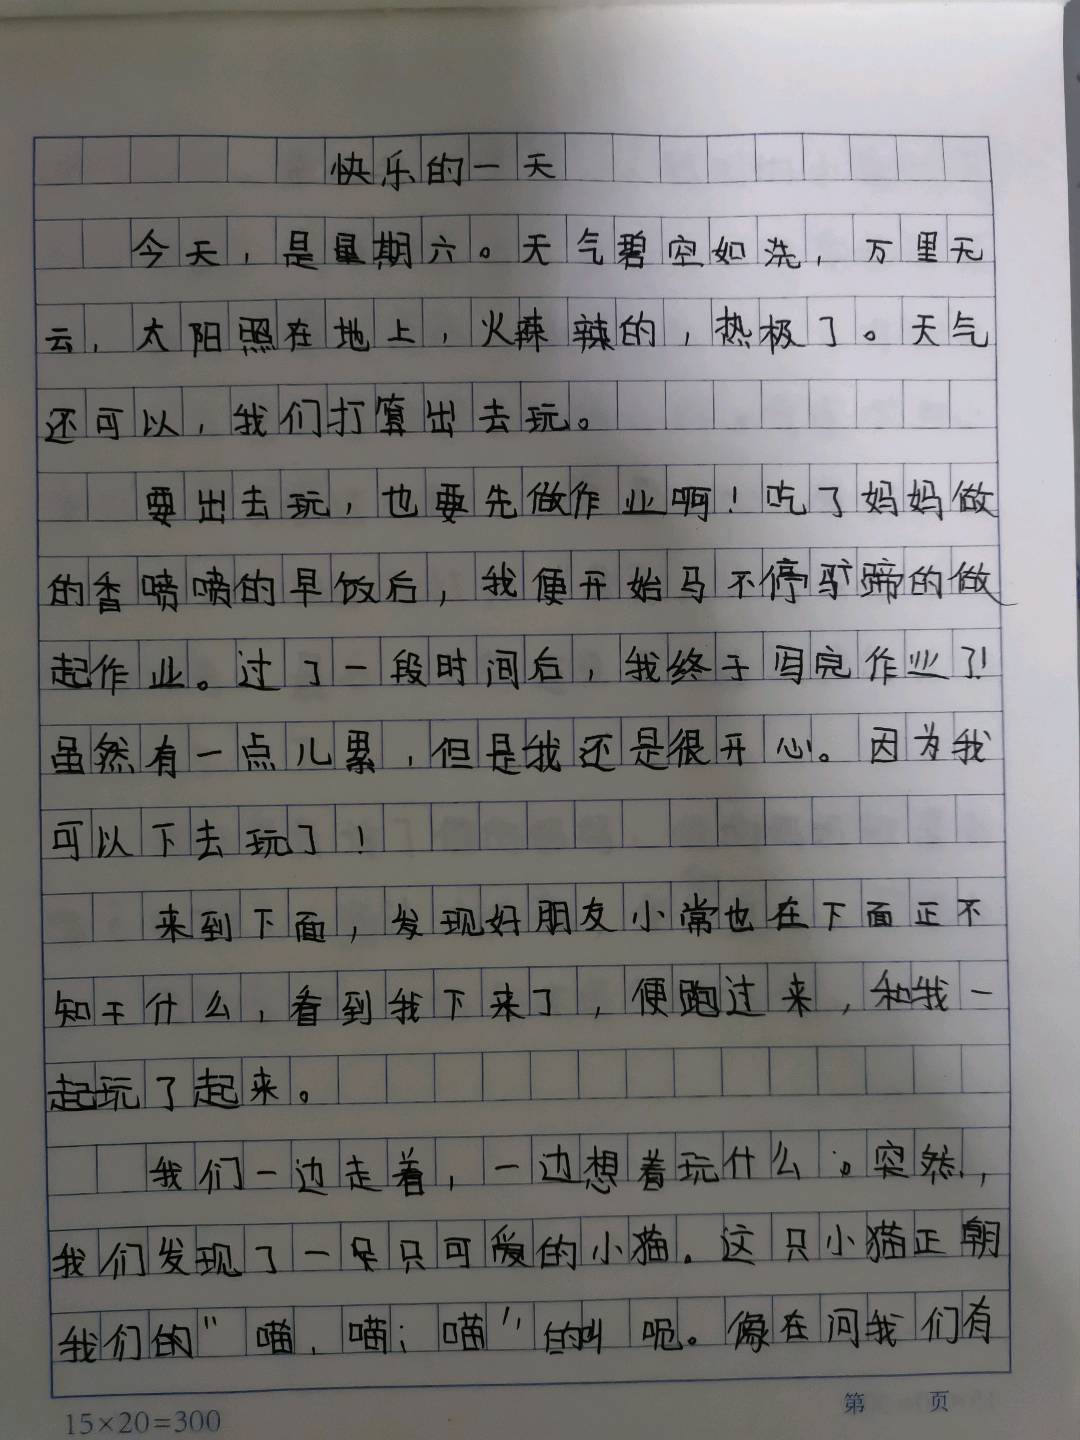 快乐的一天
今天，是星期六。天气碧空如洗，万里无
云，太阳照在地上，火辣辣的，热极了。天气
还可以，我们打算出去玩。
要出去玩，也要先做作业啊！吃了妈妈做
的香喷喷的早饭后，我便开始马不停蹄的做
起作业。过了一段时间后，我终于写完作业了！
虽然有一点儿累，但是我还是很开心。因为我
可以下去玩了！
来到下面，发现好朋友小常也在下面正不
知干什么，看到我下来了，便跑过来，和我一
起玩了起来。
我们一边走着，一边想着玩什么。突然，
我们发现了一只可爱的小猫。这只小猫正朝
我们的“喵，喵；喵”的叫呃。像在问我们有
15×20=300
第 页